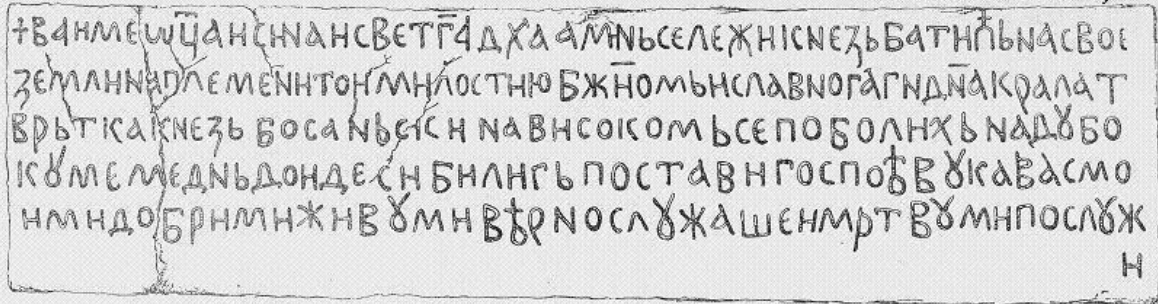 +ВАИМЕѠЦ҃АИСИНАИСВЕТГ҃АДХ҃ААМ҃НЬСЕЛЕЖИКНЕЗЬБАТИЋЬНАСВОЕ
ЗЕМЛИНАПЛЕМЕНИТОИМИЛОСТИЮБЖ҃ИОМЬИСЛАВНОГАГ҃ИДН҃АКРАЛАТ
ВРЬТКАКНЕЗЬБОСАНЬСКИНАВИСОКОМЬСЕПОБОЛИХЬНАДꙊБО
КꙊМЕМЕДНЬДОИДЕСИБИЛИГЬПОСТАВИГОСПОꙉВꙊКАВАСМО
ИМИДОБРИМИЖИВꙊМИВѢРНОСЛꙊЖАШЕИМРТВꙊМИПОСЛꙊЖ
И